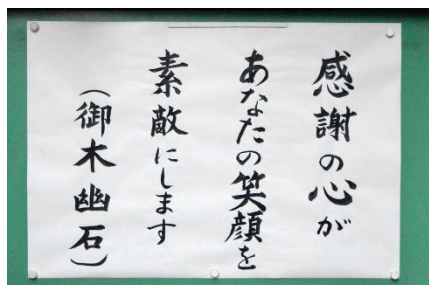 感謝の心が
あなたの笑顔を
素敵にします
（御木幽石）